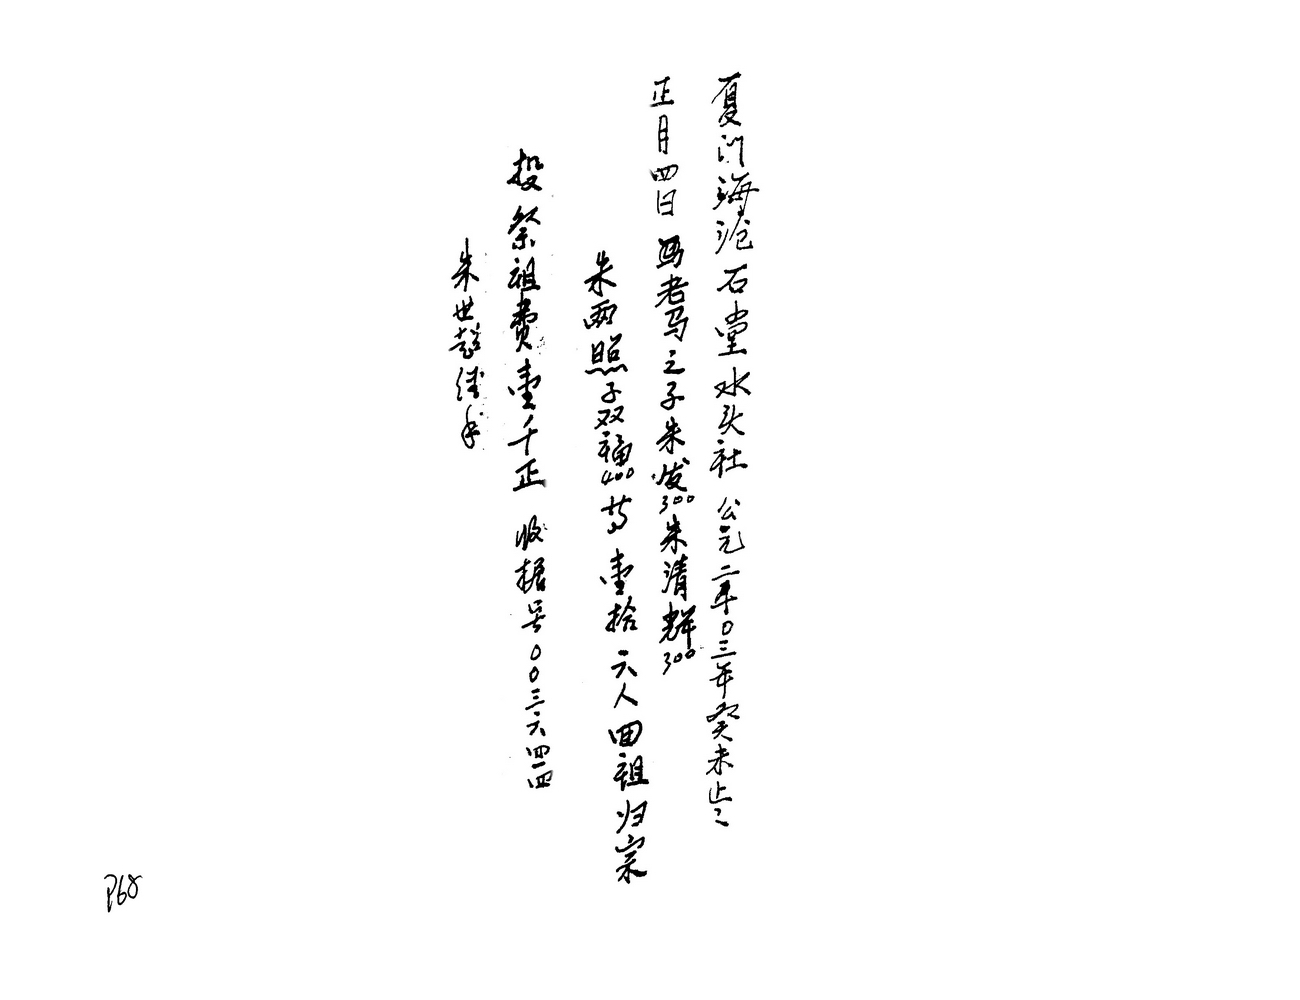 厦门海沧石堂水头社 公元二年0三年癸未
正月四日 马老马之子朱发300朱清辉300
朱两照子双福400 等壹拾六人回祖归宗
投祭祖费壹千正 收据号00三六四四
朱世 经手
P68